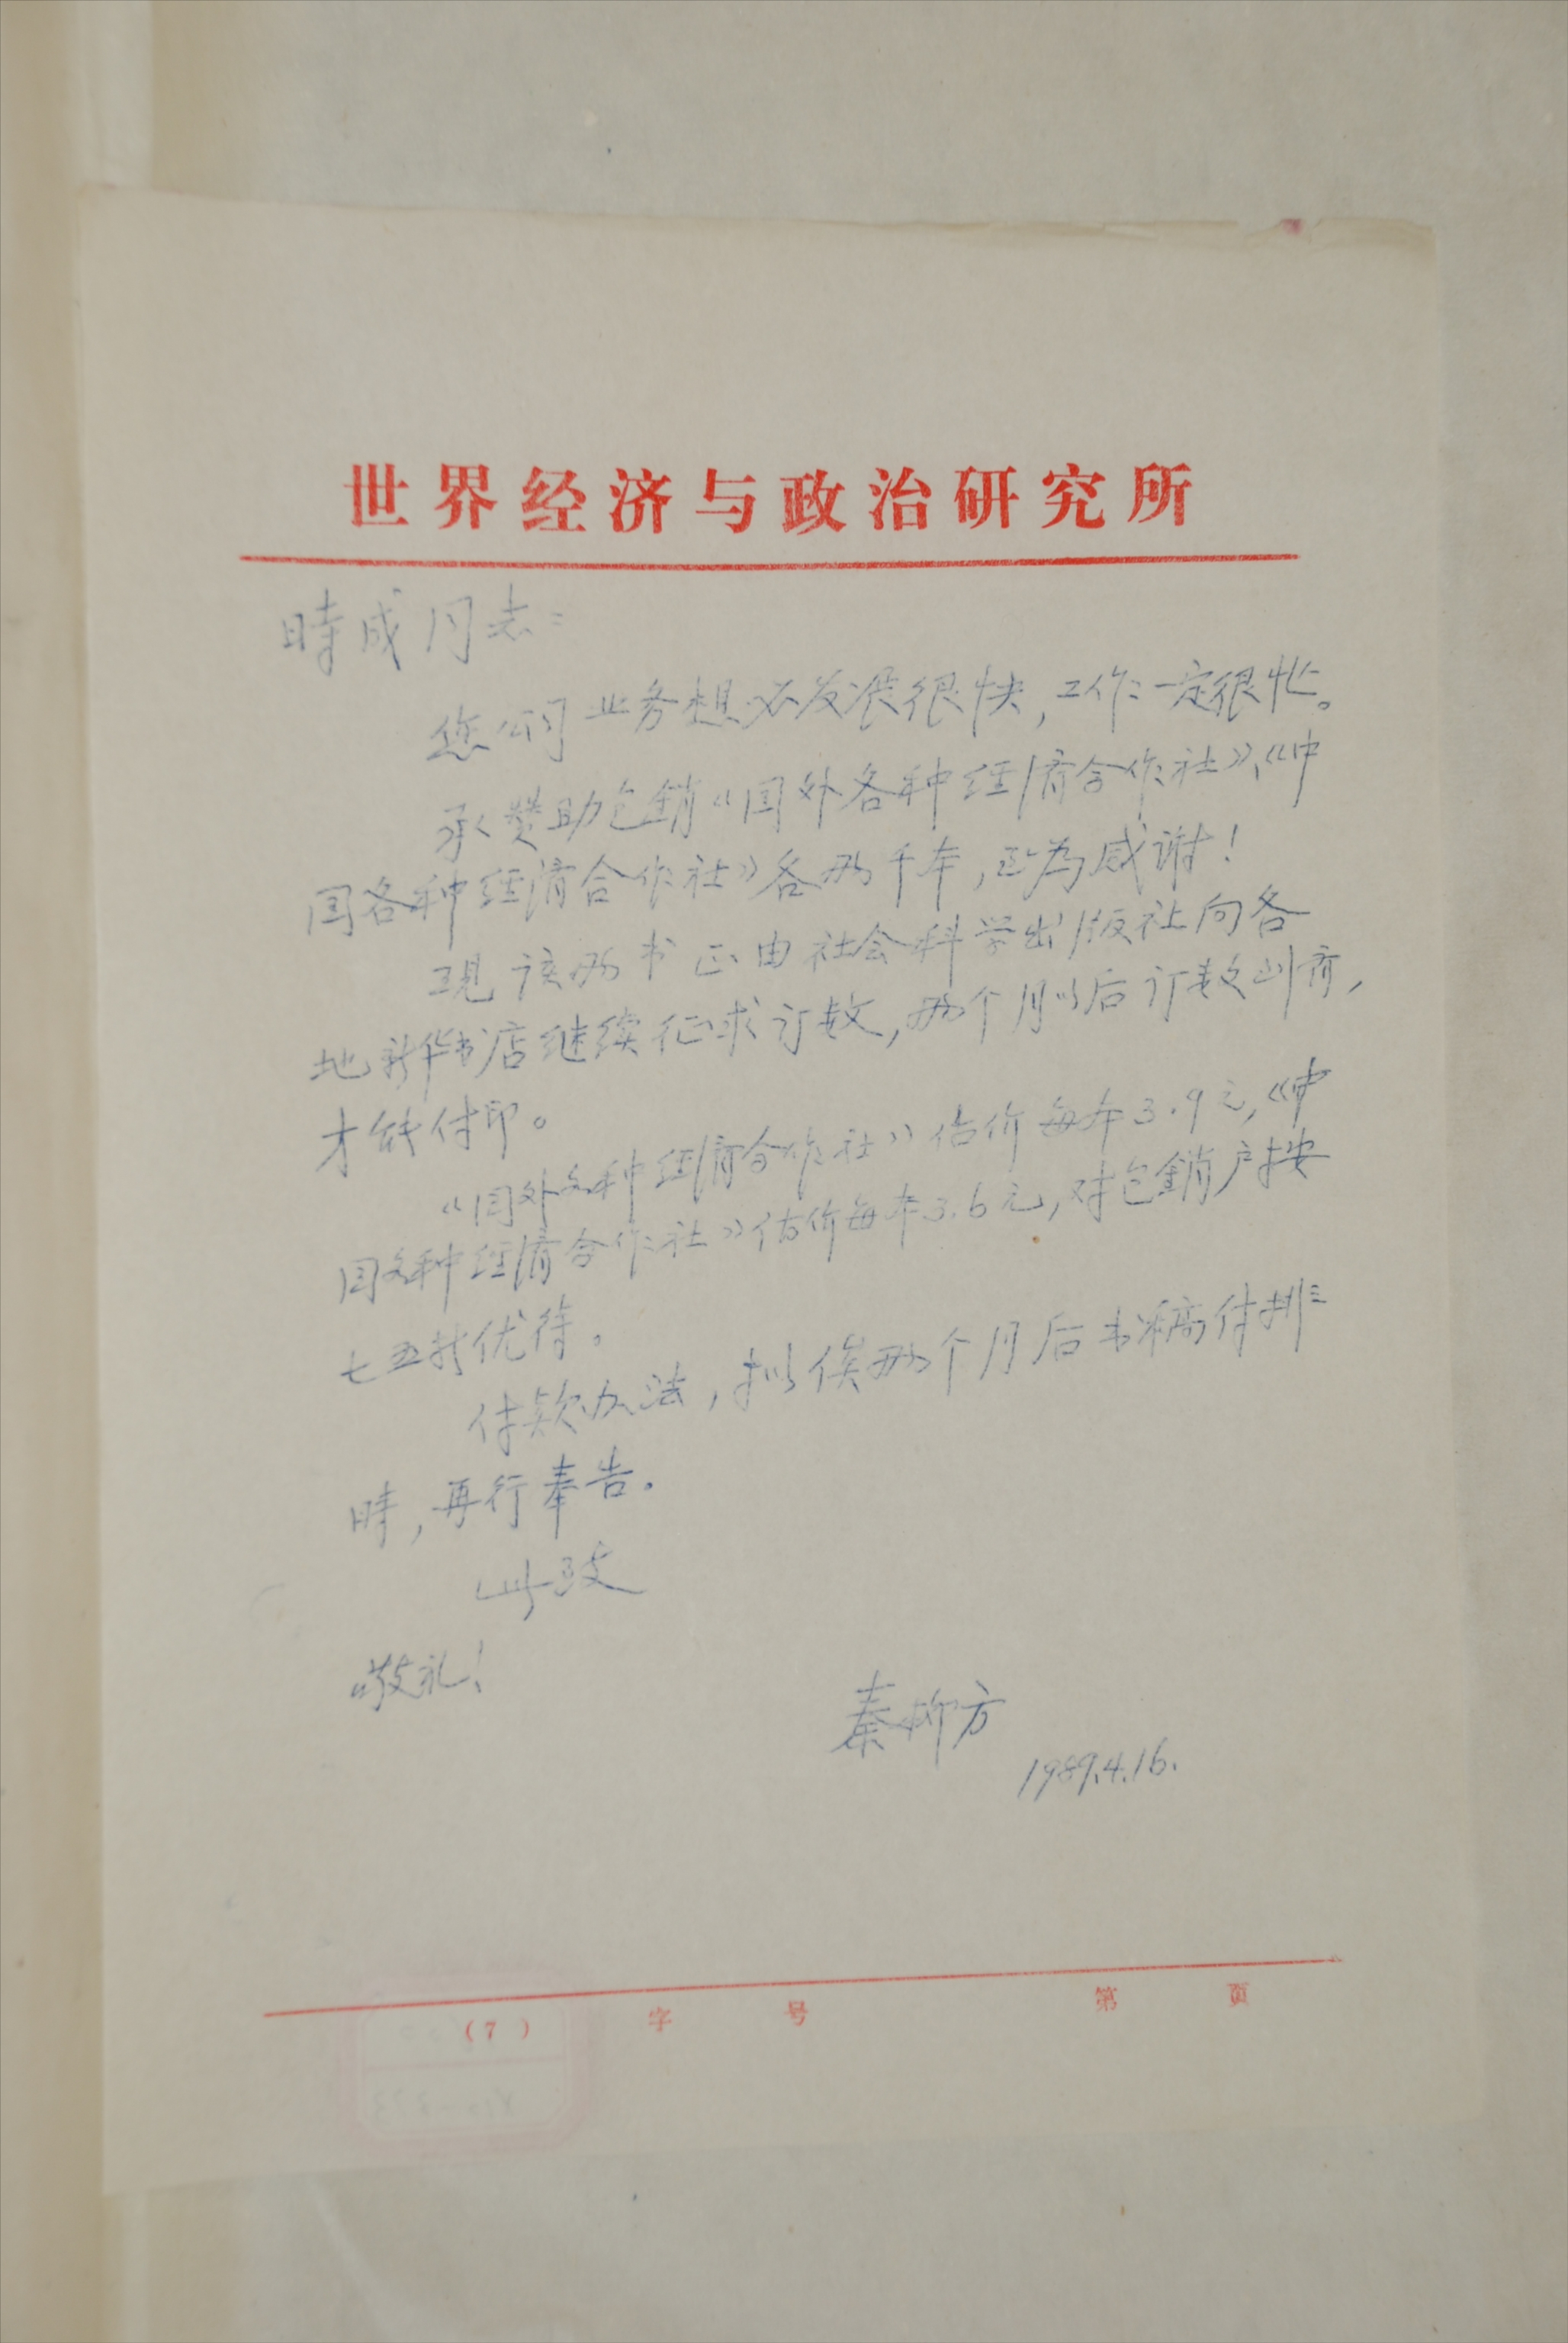 世界经济与政治研究所
時成同志：
您们业务想必发展很快，工作一定很忙。
承赞助包銷《国外各种经济合作社》、《中
国各种经济合作社》各两千本，至为感谢！
现该两书正由社会科学出版社向各
地新华书店继续征求订数，两个月以后订数到齐，
才能付印。
《国外各种经济合作社》估价每本3.9元，《中
国各种经济合作社》估价每本3.6元，对包銷户按
七五折优待。
付款办法，拟俟两个月后书稿付排
時，再行奉告。
此致
敬礼！
秦柳方
1989.4.16.
（7） 字 号 第 页